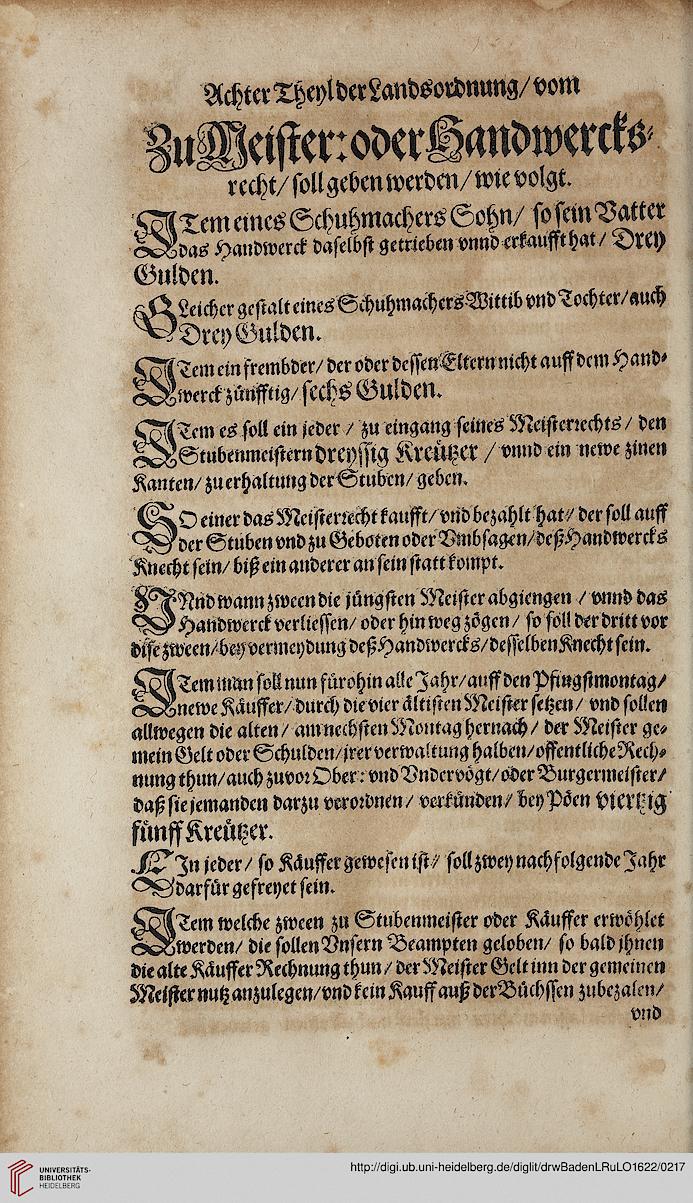 Achter Theyl der Landsordnung/ vom
Zu Meister: oder Handwercks-
recht/ soll geben werden/ wie volgt.
ITem eines Schuhmachers Sohn/ so sein Vatter
das Handwerck daselbst getrieben vnnd erkaufft hat/ Drey
Gulden.
GLeicher gestalt eines Schuhmachers Wittib vnd Tochter/ auch
Drey Gulden.
ITem ein frembder/ der oder dessen Eltern nicht auff dem Hand-
werck zünfftig/ sechs Gulden.
ITem es soll ein jeder / zu eingang seines Meisterrechts / den
Stubenmeistern dreyssig Kreützer / vnnd ein newe zinen
Kanten/ zu erhaltung der Stuben/ geben.
SO einer das Meisterrecht kaufft/ vnd bezahlt hat/ der soll auff
der Stuben vnd zu Geboten oder Vmbsagen/ deß Handwercks
Knecht sein/ biß ein anderer an sein statt kompt.
VNnd wann zween die jüngsten Meister abgiengen / vnnd das
Handwerck verliessen/ oder hin weg zögen / so soll der dritt vor
dise zween/ bey vermeydung deß Handwercks/ desselben Knecht sein.
ITem man soll nun fürohin alle Jahr/ auff den Pfingstmontag/
newe Käuffer/ durch die vier ältisten Meister setzen/ vnd sollen
allwegen die alten / am nechsten Montag hernach / der Meister ge-
mein Gelt oder Schulden/ jrer verwaltung halben/ offentliche Rech-
nung thun/ auch zuvor Ober: vnd Vndervögt/ oder Burgermeister/
daß sie jemanden darzu verordnen / verkünden / bey Pöen viertzig
fünff Kreützer.
EIn jeder / so Käuffer gewesen ist/ soll zwey nachfolgende Jahr
darfür gefreyet sein.
ITem welche zween zu Stubenmeister oder Käuffer erwöhlet
werden/ die sollen Vnsern Beampten geloben/ so bald jhnen
die alte Käuffer Rechnung thun / der Meister Gelt inn der gemeinen
Meister nutz anzulegen/ vnd kein Kauff auß der Büchssen zubezalen/
vnd
UNIVERSITÄTS-
BIBLIOTHEK
HEIDELBERG
http://digi.ub.uni-heidelberg.de/diglit/drwBadenLRuLO1622/0217